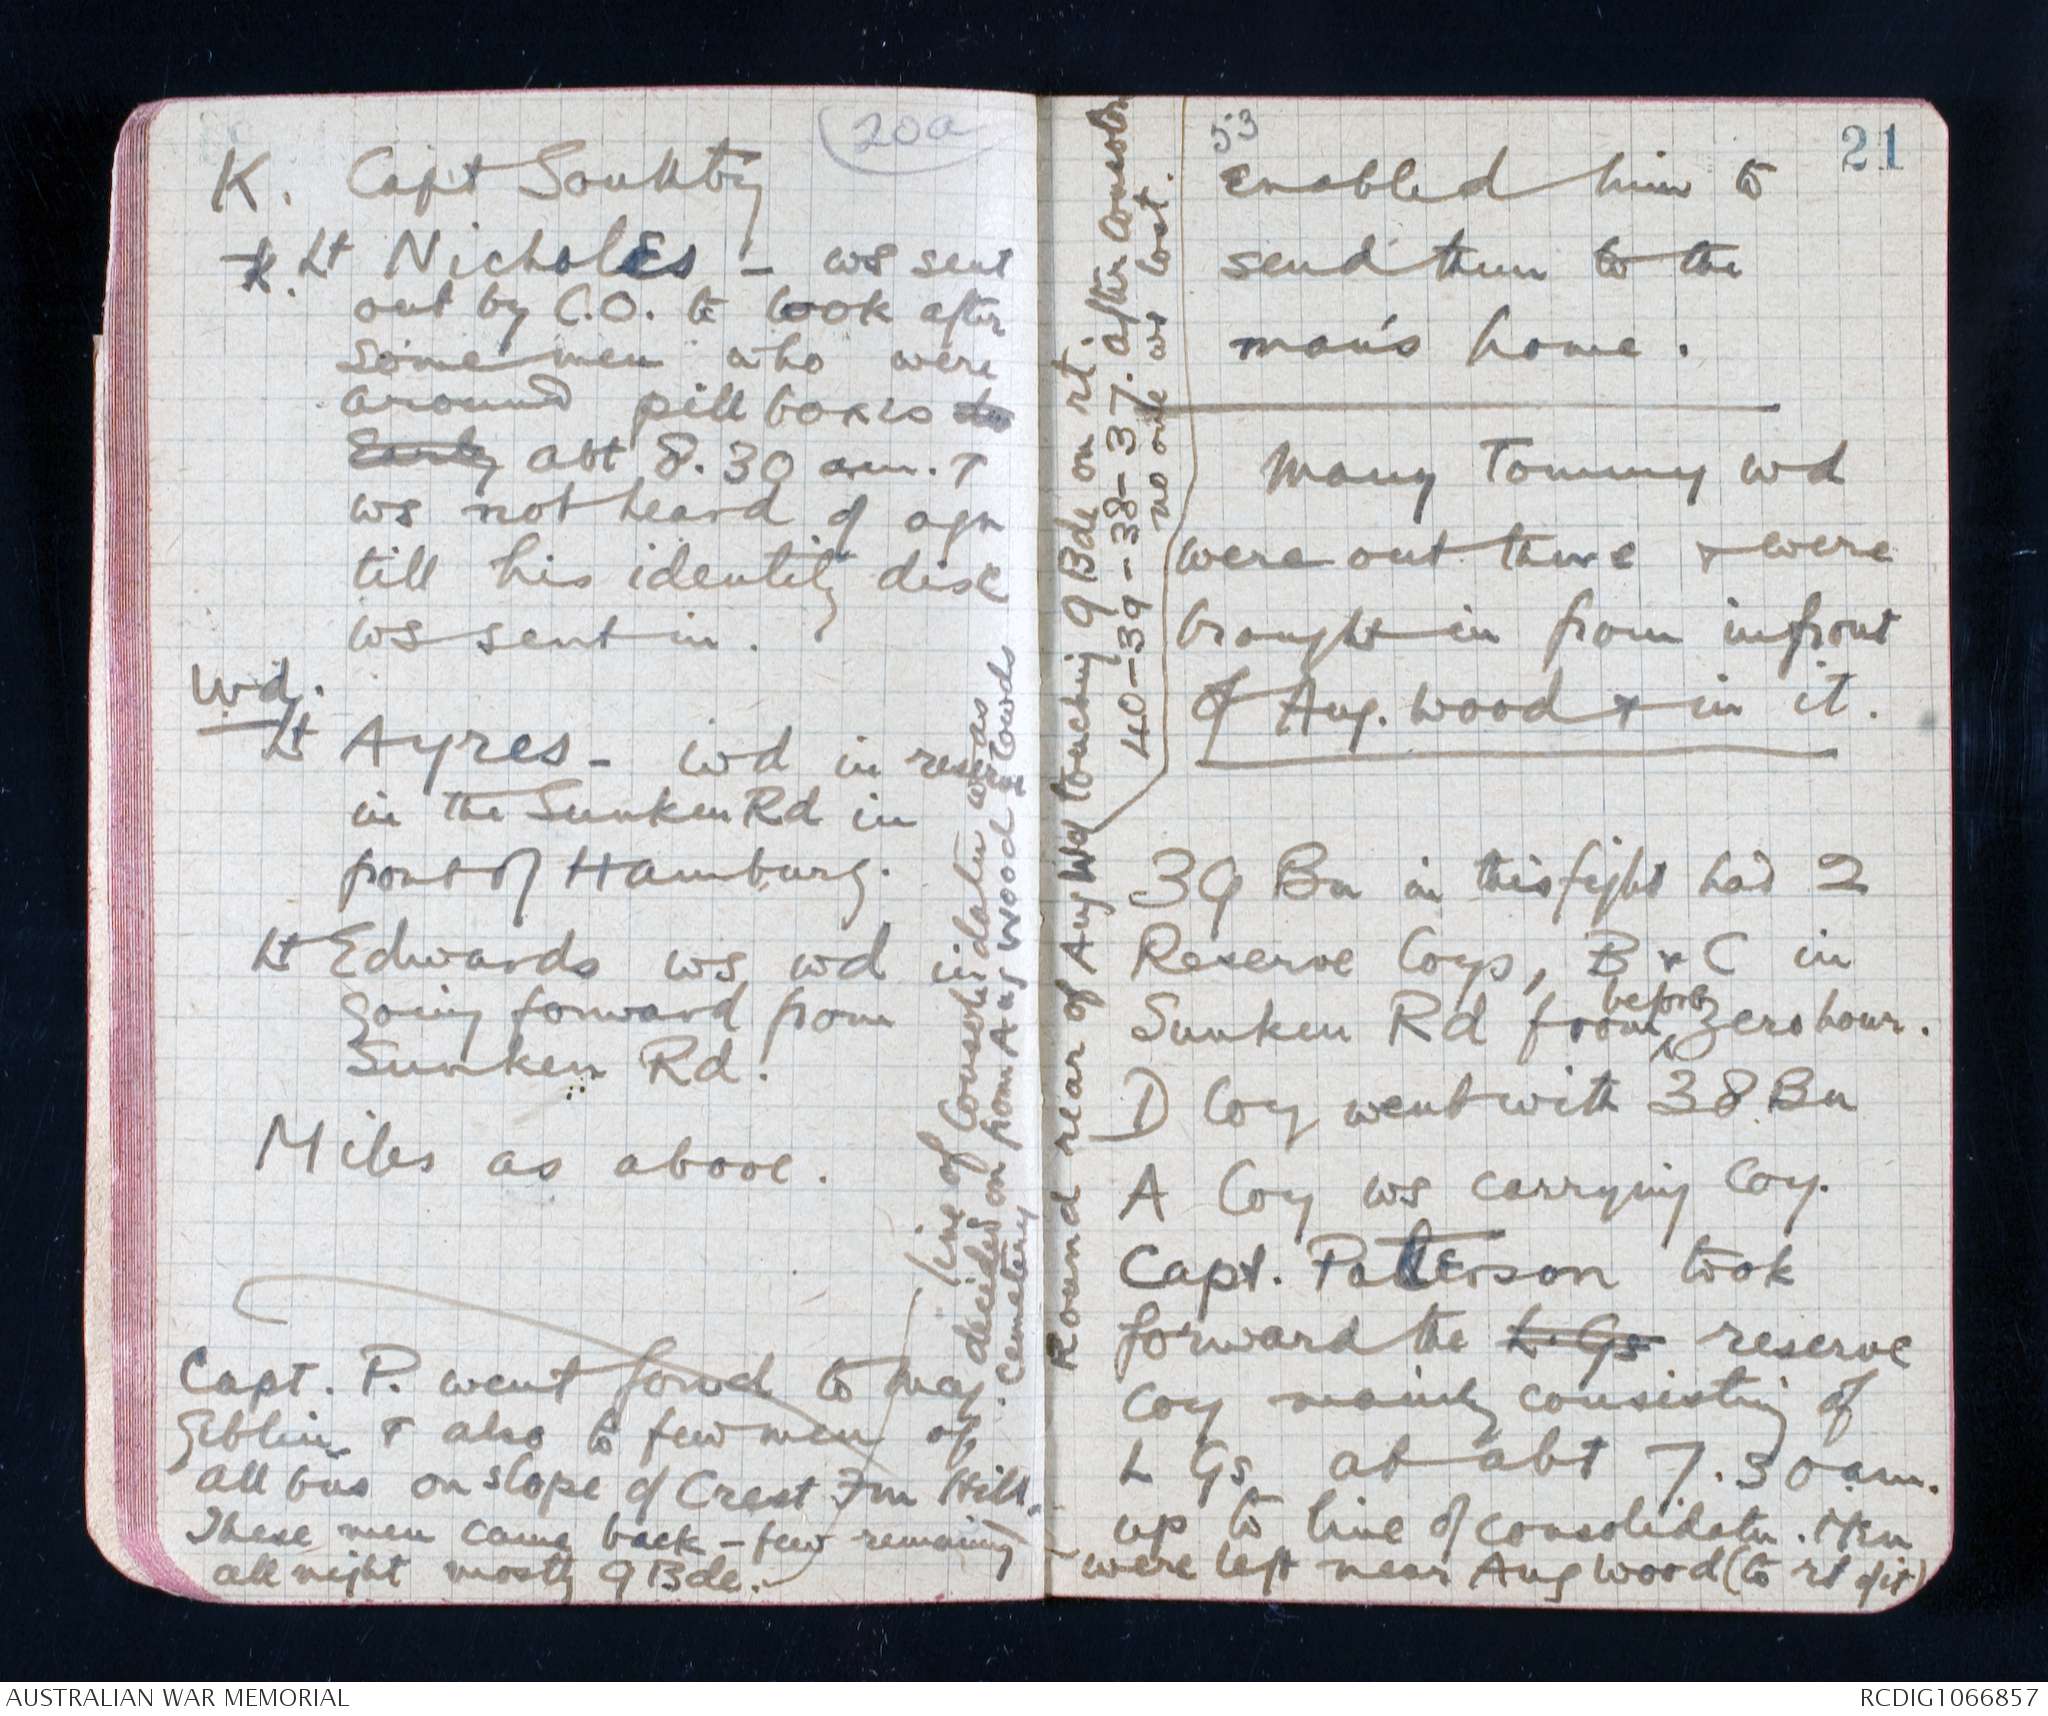 20a
K. Capt Soukby
K. Lt Nicholes - ws sent
out by C.O. to look after
some men who were
around pill boxes
Early abt 8.30 am. &
ws not heard of agn
till his identity disc
ws sent in.
Wd.
Lt Ayres - wd in reserve
in the Sunken Rd in
front of Hamburg.
Lt Edwards ws wd in
going forward from
Sunken Rd.
Miles as above.
Capt. P. went forwd to Maj.
Giblin & also to few men of
all bns on slope of Crest Fm Hill.
These men came back - few remaining
all night mostly 9 Bde.
line of consolidatn was as
decided on from Aug Wood towds
cemetery
Round rear of Aug Wd touching 9 Bde on rt.
40-39-38-37. after consoln
no one ws lost.
53
21
enabled him to
send them to the
man's home.
Many Tommy wd
were out there & were
brought in from in front
of Aug. Wood & in it.
39 Bn in this fight had 2
Reserve Coys, B & C in
Sunken Rd from before zero hour.
D Coy went with 38 Bn
A Coy ws carrying Coy.
Capt. Patterson took
forward the L. Gs reserve
coy mainly consisting of
L Gs at abt 7.30 am.
up to line of consolidatn. Men
were left near Aug Wood (to rt of it)
AUSTRALIAN WAR MEMORIAL
RCDIG1066857